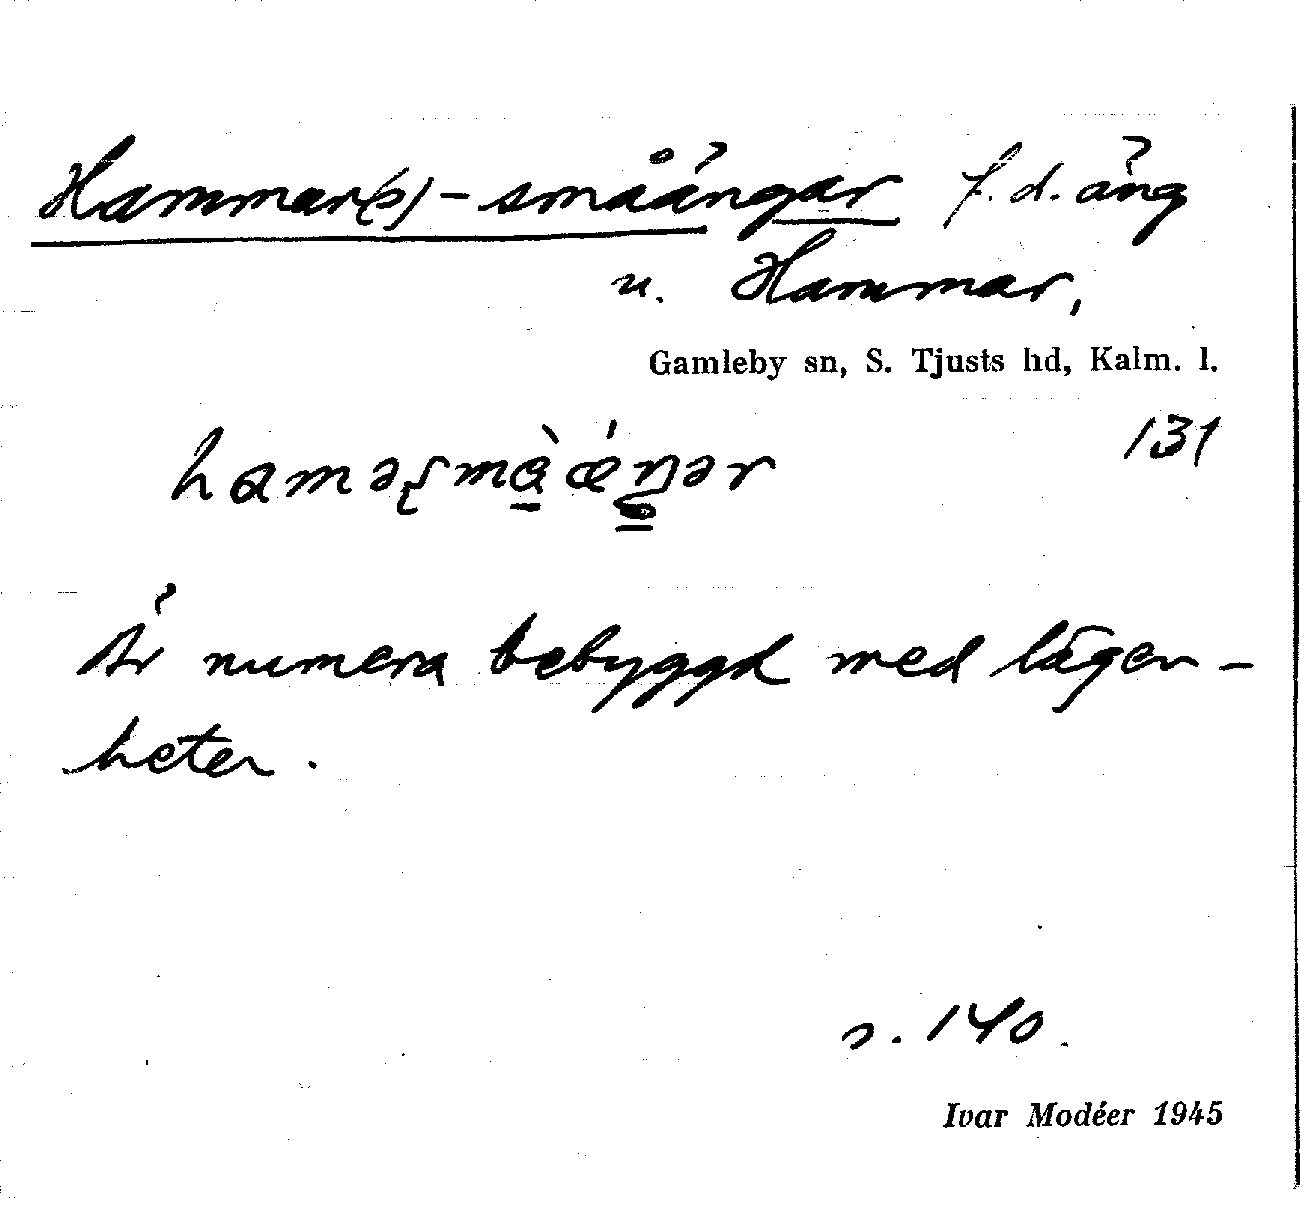 Hammar(s)-småängar f.d. äng
u. Hammar,
Gamleby sn, S. Tjusts hd, Kalm. l.
131
Är numera bebyggd med lägen-
heter.
s. 140.
Ivar Modéer 1945